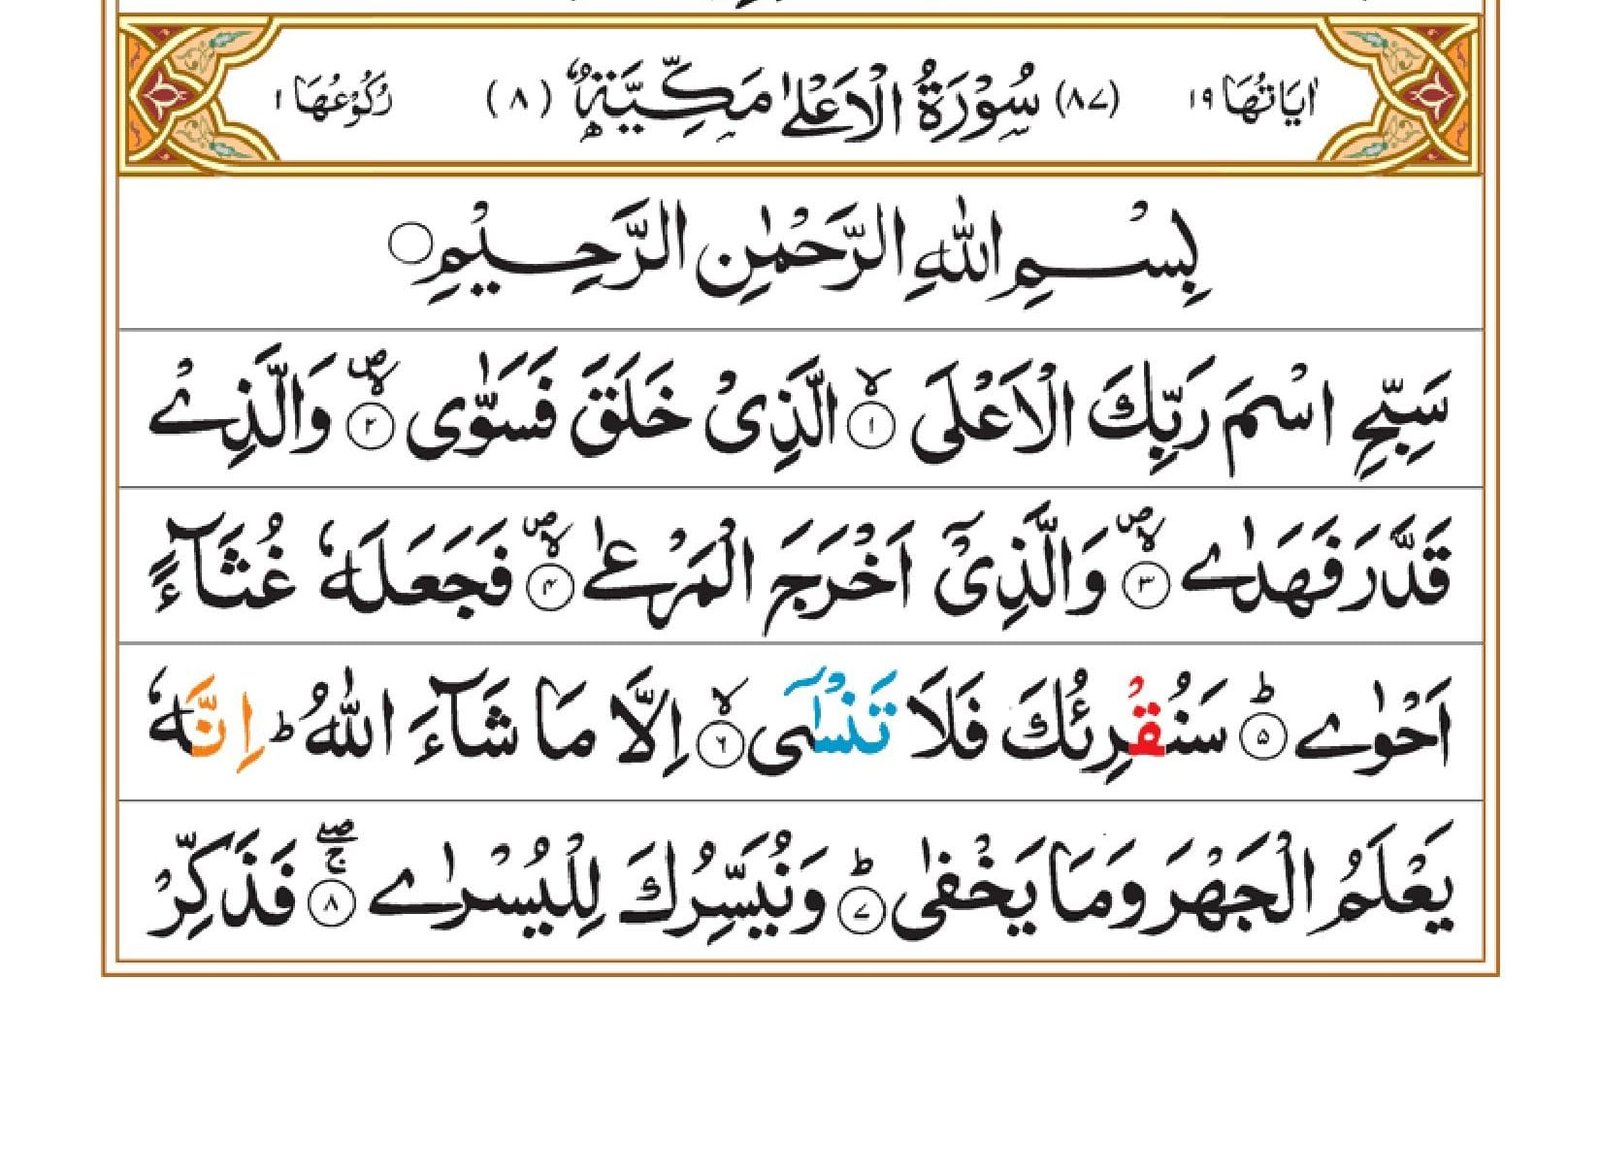 اٰيَاتُهَا ١٩ (٨٧) سُوْرَةُ الْاَعْلٰى مَكِّيَّةٌ (٨) رُكُوْعُهَا ١
بِسْمِ اللّٰهِ الرَّحْمٰنِ الرَّحِيْمِ ○
سَبِّحِ اسْمَ رَبِّكَ الْاَعْلَى ۙ‏﴿١﴾ الَّذِىْ خَلَقَ فَسَوّٰى ۪ۙ‏﴿٢﴾ وَالَّذِىْ
قَدَّرَ فَهَدٰى ۪ۙ‏﴿٣﴾ وَالَّذِىْۤ اَخْرَجَ الْمَرْعٰى ۪ۙ‏﴿٤﴾ فَجَعَلَهٗ غُثَآءً
اَحْوٰى ؕ‏﴿٥﴾ سَنُقْرِئُكَ فَلَا تَنْسٰٓى ۙ‏﴿٦﴾ اِلَّا مَا شَآءَ اللّٰهُ‌ؕ اِنَّهٗ
يَعْلَمُ الْجَهْرَ وَمَا يَخْفٰى ؕ‏﴿٧﴾ وَنُيَسِّرُكَ لِلْيُسْرٰى ۖۚ‏﴿٨﴾ فَذَكِّرْ